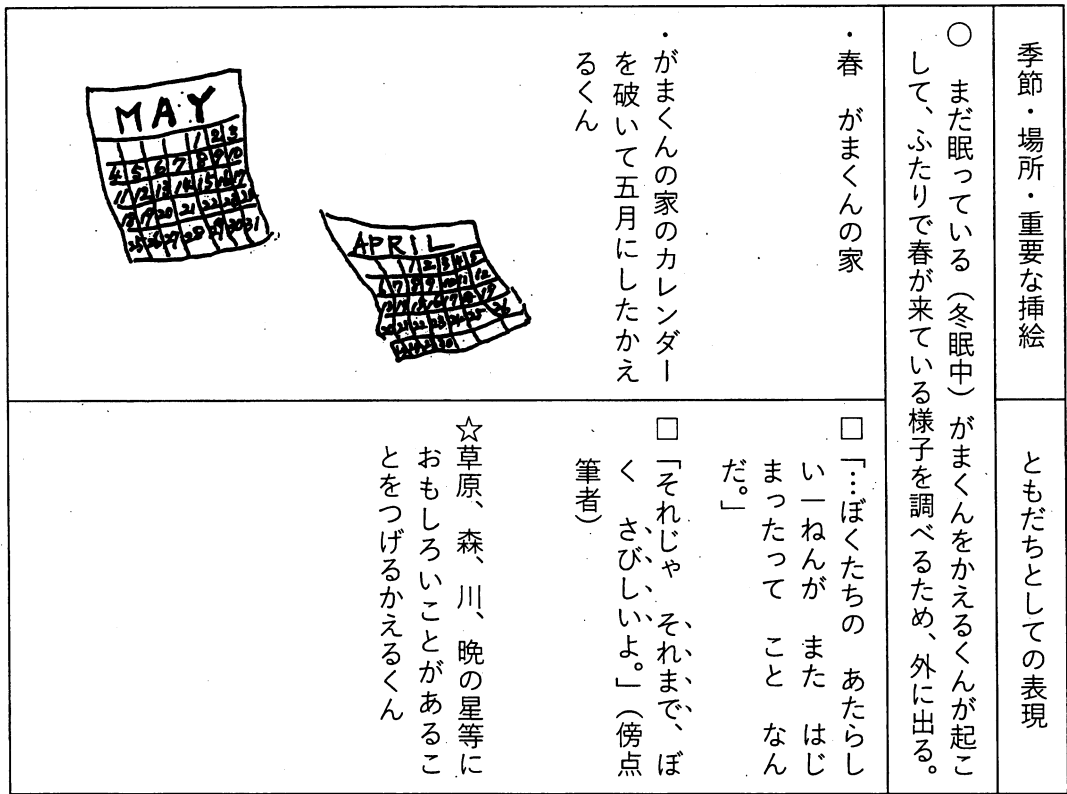 季節・場所・重要な挿絵
ともだちとしての表現
○ まだ眠っている（冬眠中）がまくんをかえるくんが起こ
して、ふたりで春が来ている様子を調べるため、外に出る。
・春 がまくんの家
・がまくんの家のカレンダー
を破いて五月にしたかえ
るくん
MAY
1 2 3
4 5 6 7 8 9 10
11 12 13 14 15 16 17
18 19 20 21 22 23 24
25 26 27 28 29 30 31
APRIL
1 2 3 4 5
6 7 8 9 10 11 12
13 14 15 16 17 18 19
20 21 22 23 24 25 26
30
□「…ぼくたちの あたらし
い一ねんが また はじ
まったって こと なん
だ。」
□「それじゃ それまで、ぼ
く さびしいよ。」（傍点
筆者）
☆草原、森、川、晩の星等に
おもしろいことがあるこ
とをつげるかえるくん